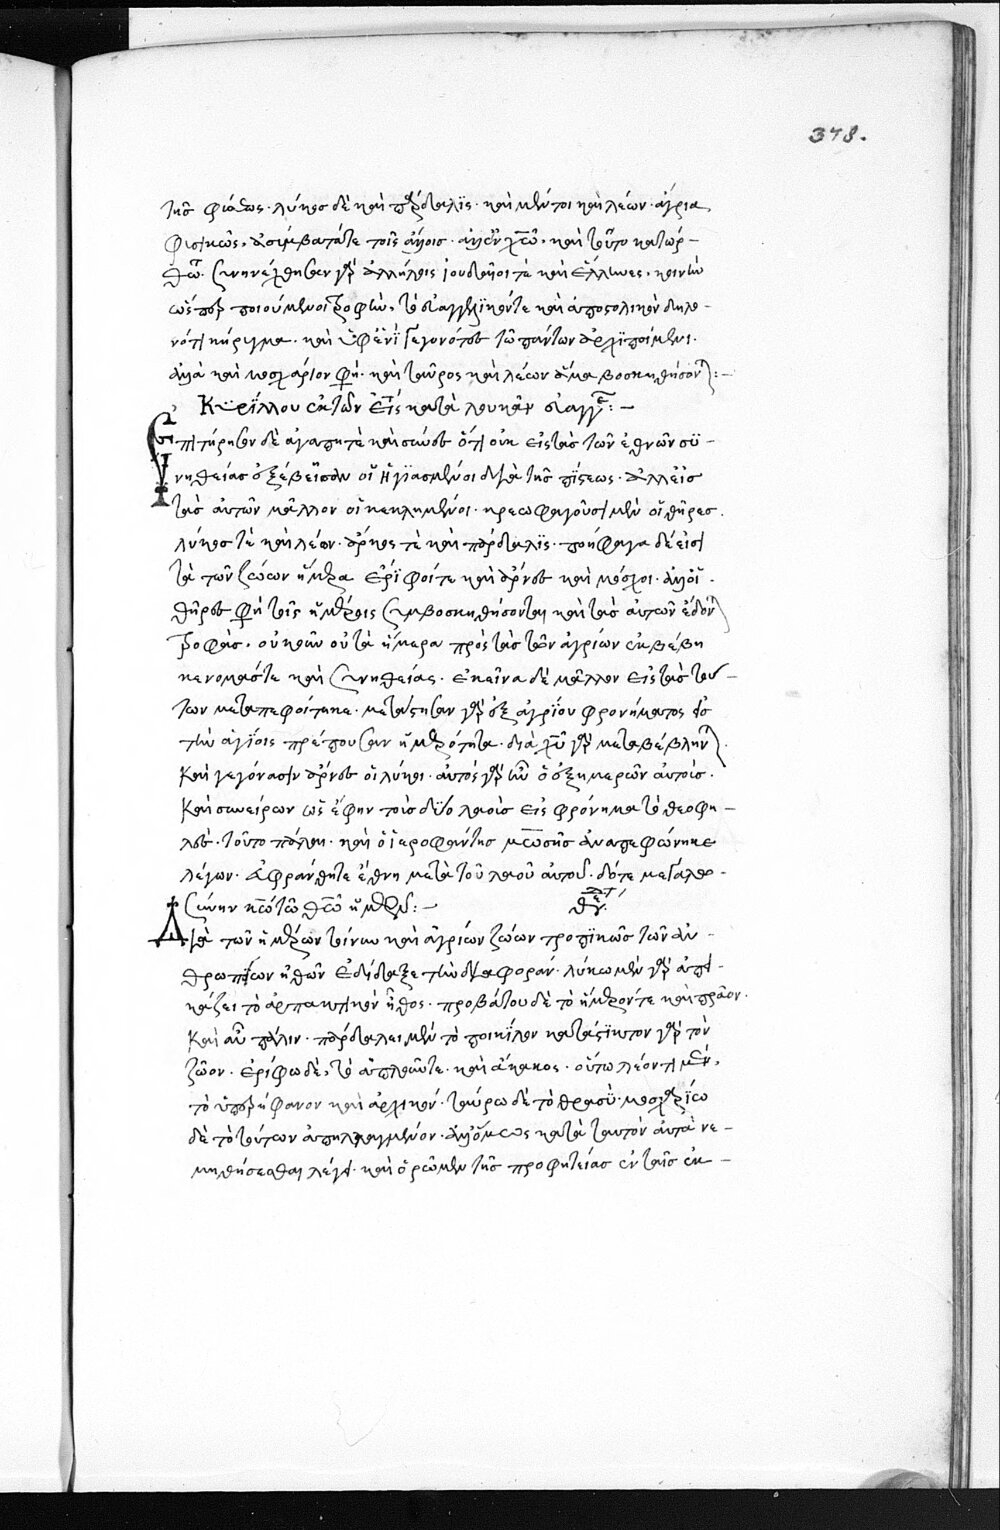 378.
τῆς φύσεως· λύκος δὲ καὶ πάρδαλϊς· καὶ μέντοι καὶ λέων· ἄγρια
φύσει καὶ ἀσύμβατά τε τοῖς ἄλλοις· ἀλλ' ἐν χ̅ω̅· καὶ τοῦτο κατώρ-
θωται· συνηνέχθησαν γὰρ ἀλλήλοις ἰουδαῖοι τὲ καὶ ἕλληνες· κοινὴν
ὥσπερ ποιούμενοι τροφὴν, τὸ εὐαγγελϊκόν τε καὶ ἀποστολικὸν δηλο-
νότι κήρυγμα· καὶ ὑφ' ἑνὶ γεγονότες τῶ πάντων ἀρχϊποίμενι·
ἀλλὰ καὶ μοσχάριον φησὶ· καὶ ταῦρος καὶ λέων ἅμα βοσκηθήσονται:-
Κυρίλλου ἐκ τῶν εἰς κατὰ λουκᾶν εὐαγγε:-
Ἐπιτήρησον δὲ ἀγαπητὲ καὶ σύνες ὅτι οὐκ εἰς τὰς τῶν ἐθνῶν συ-
νηθείας ἐξέβησαν οἱ ἡγϊασμένοι διὰ τῆς πίστεως· ἀλλ' εἰς
τὰς αὐτῶν μᾶλλον οἱ κεκλημένοι· κρεωφαγοῦσι μὲν οἱ θῆρες·
λύκος τὲ καὶ λέων· ἄρκος τὲ καὶ πάρδαλϊς· ποηφάγα δέ εἰσι
τὰ τῶν ζώων ἥμερα ἔρϊφοί τε καὶ ἄρνες καὶ μόσχοι· ἀλλ' οἱ
θῆρες φησὶ τοῖς ἡμέροις συμβοσκηθήσονται καὶ τὰς αὐτῶν ἔδονται
τροφὰς· οὐκοῦν οὐ τὰ ἥμερα πρὸς τὰς τῶν ἀγρίων ἐκβέβη
κε νομάς τε καὶ συνηθείας· ἐκεῖνα δὲ μᾶλλον εἰς τὰς τού-
των μεταπεφοίτηκε· μετέστησαν γὰρ ἐξ ἀγρίου φρονήματος εἰς
τὴν ἁγίοις πρέπουσαν ἡμερότητα· διὰ χ̅υ̅ γὰρ μεταβέβληνται·
Καὶ γεγόνασιν ἄρνες οἱ λύκοι· αὐτὸς γὰρ ἦν ὁ ἐξημερῶν αὐτοὺς·
Καὶ συνείρων ὡς ἔφην τοὺς δύο λαοὺς εἰς φρόνημα τὸ θεοφι-
λὲς· τοῦτο πάλαι· καὶ ὁ ἱεροφάντης μωσῆς ἀναπεφώνηκε
λέγων· εὐφράνθητε ἔθνη μετὰ τοῦ λαοῦ αὐτοῦ· δότε μεγαλω-
σύνην κ̅ω̅ τῶ θ̅ω̅ ἡμῶν:-
Διὰ τῶν ἡμέρων τοίνυν καὶ ἀγρίων ζώων τροπϊκῶς τῶν ἀν-
θρωπείων ἠθῶν ἐδίδαξε τὴν διαφοράν· λύκω μὲν γὰρ ἀπει-
κάζει τὸ ἁρπακτικὸν ἦθος· προβάτου δὲ τὸ ἥμερόν τε καὶ πρᾶον·
Καὶ αὖ πάλιν· παρδάλει μὲν τὸ ποικίλον κατάστϊκτον γὰρ τὸν
ζῶον· ἐρίφω δὲ, τὸ ἁπλοῦν τε· καὶ ἄκακος· οὕτω λέοντι μὲν,
τὸ ὑπερήφανον καὶ ἀρχικόν· ταύρω δὲ τὸ θρασὺ· μοσχαρίω
δὲ τὸ τούτων ἀπηλλαγμένον· ἀλλ' ὅμως κατὰ ταυτὸν αὐτὰ νε-
μηθήσεσθαι λέγει· καὶ ὁρῶμεν τῆς προφητείας ἐν ταῖς ἐκ-